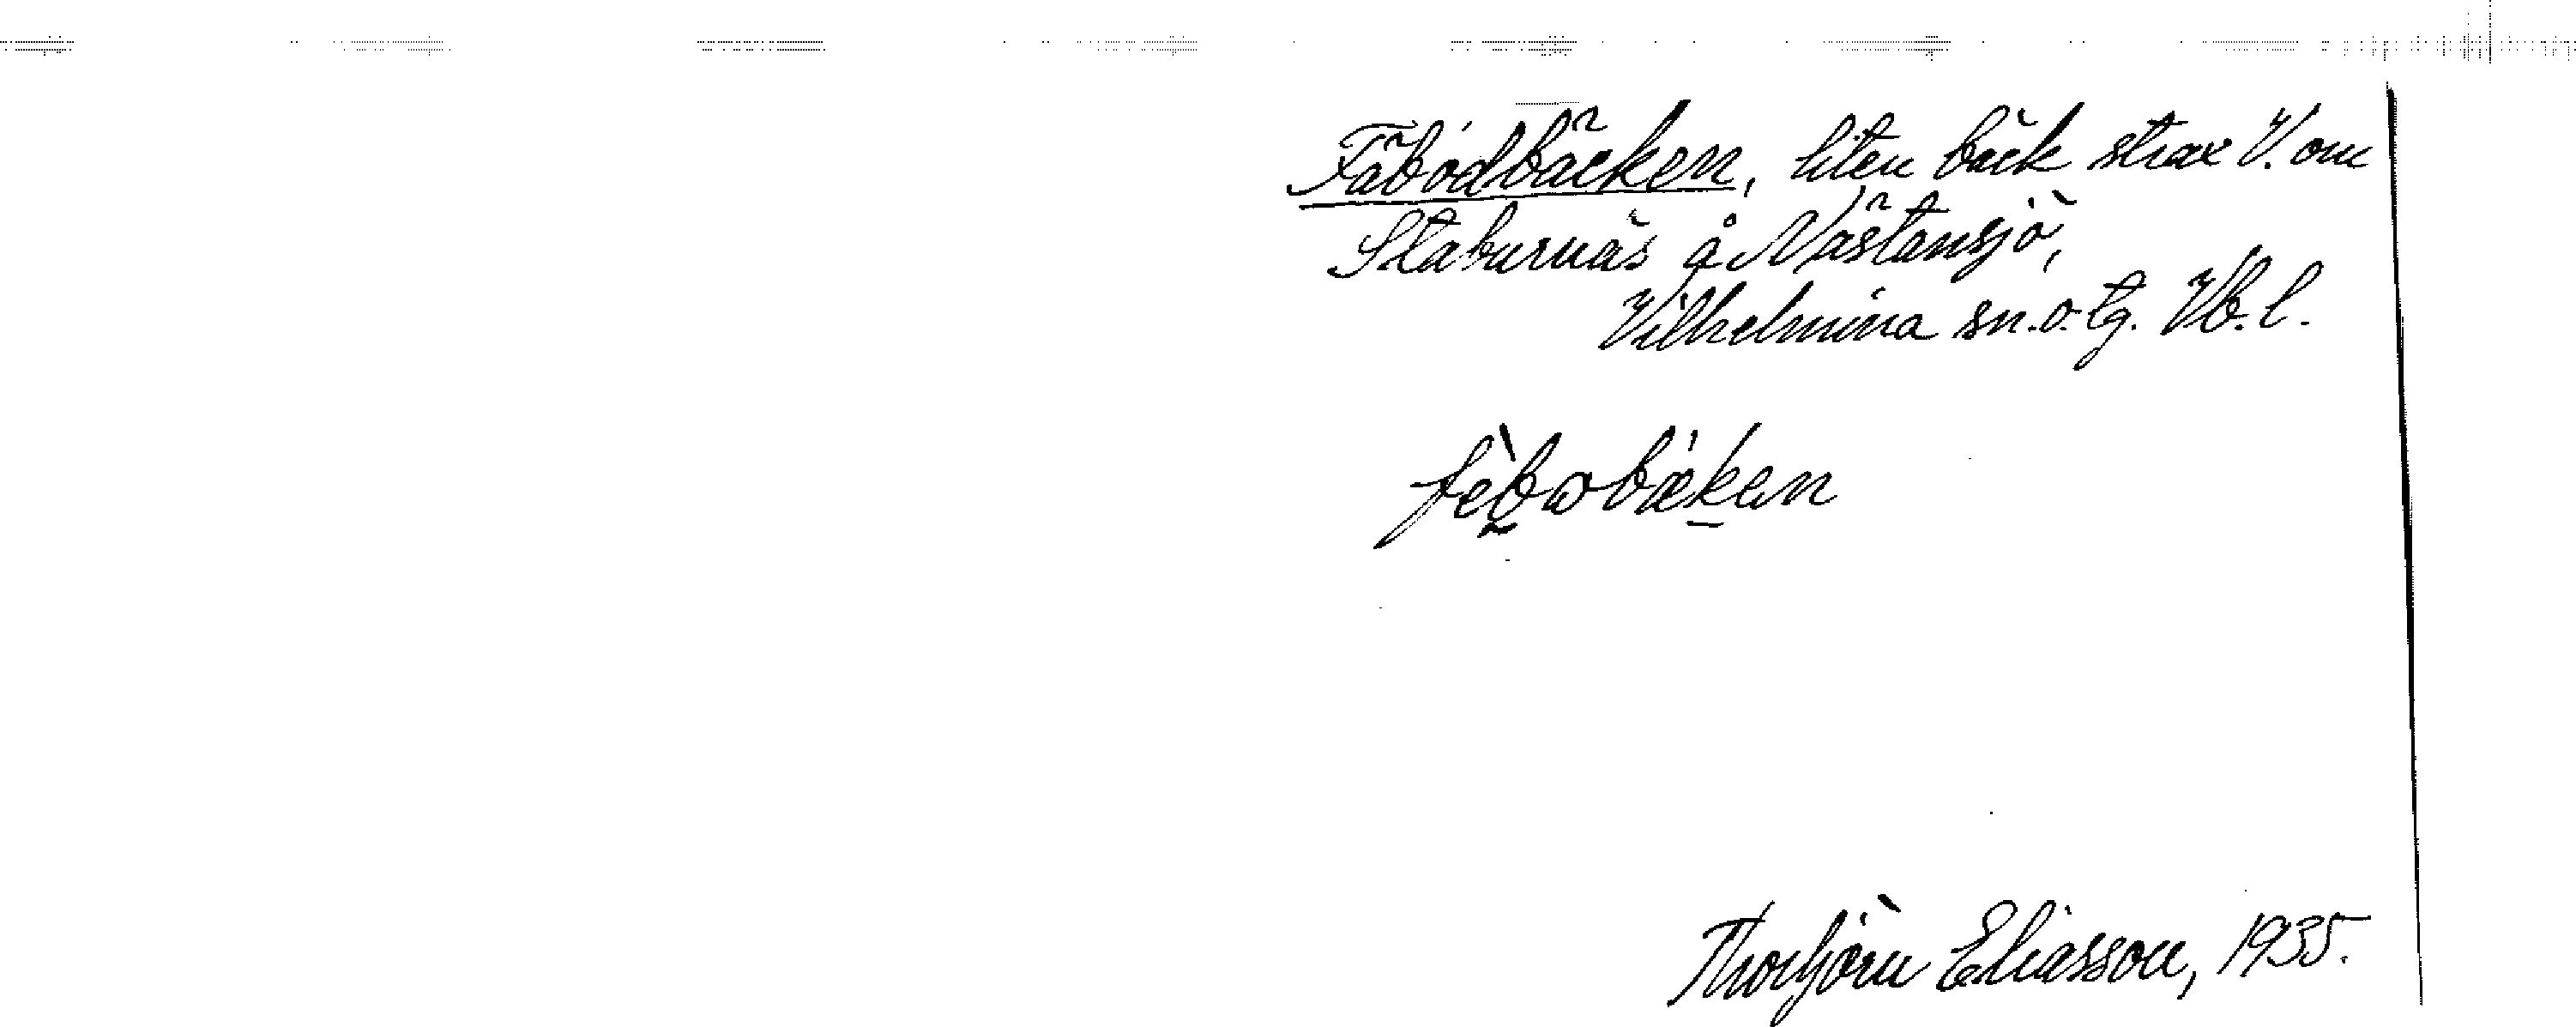 Fäbodbäcken, liten bäck strax V. om
Staburnäs å Nästansjö,
Vilhelmina sn. o. tg. Vb. l.
fèbωbækən
Thorbjörn Eliasson, 1935.